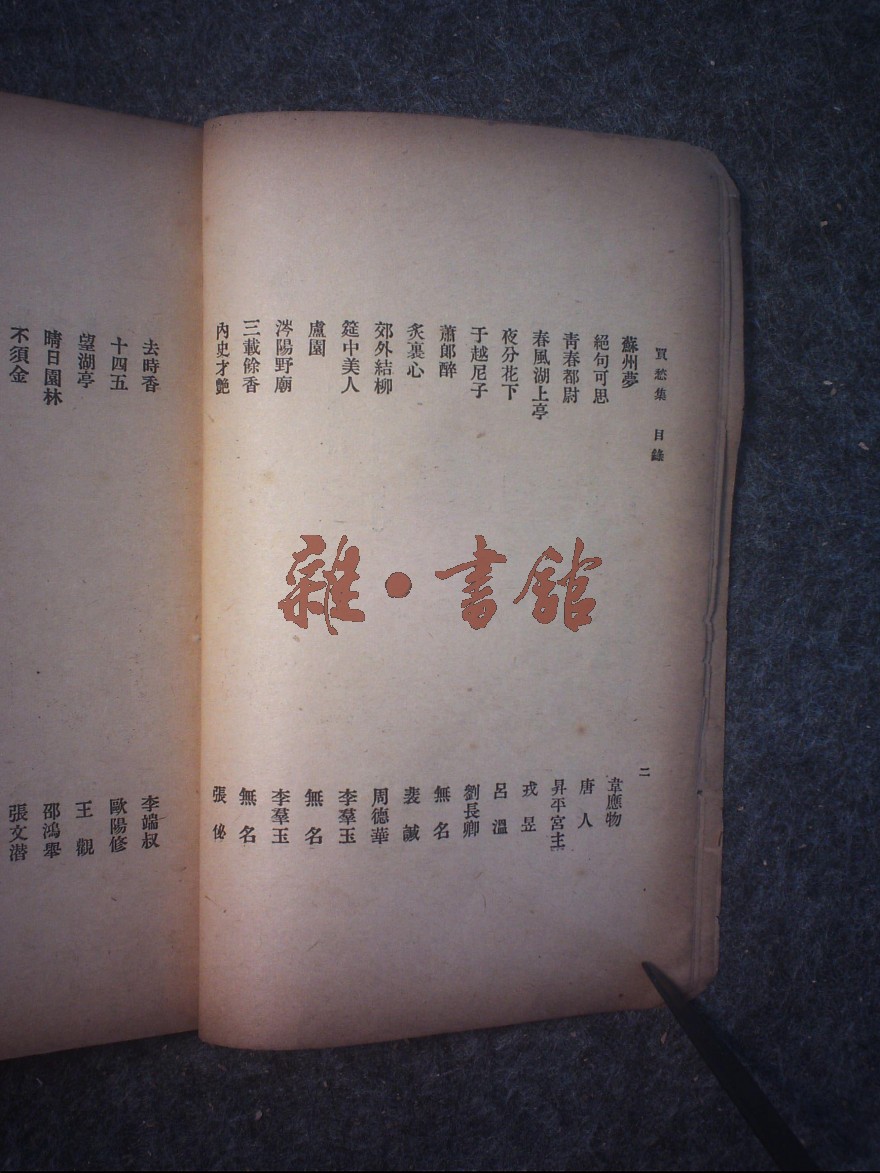 買愁集 目錄 二
蘇州夢 韋應物
絕句可思 唐人
青春都尉 昇平宮主
春風湖上亭 戎昱
夜分花下 呂溫
于越尼子 劉長卿
蕭郎醉 無名
炙裏心 裴諴
郊外結柳 周德華
筵中美人 李羣玉
盧園 無名
涔陽野廟 李羣玉
三載餘香 無名
內史才艷 張佖
去時香 李端叔
十四五 歐陽修
望湖亭 王觀
晴日園林 邵鴻舉
不須金 張文潛
雜·書館